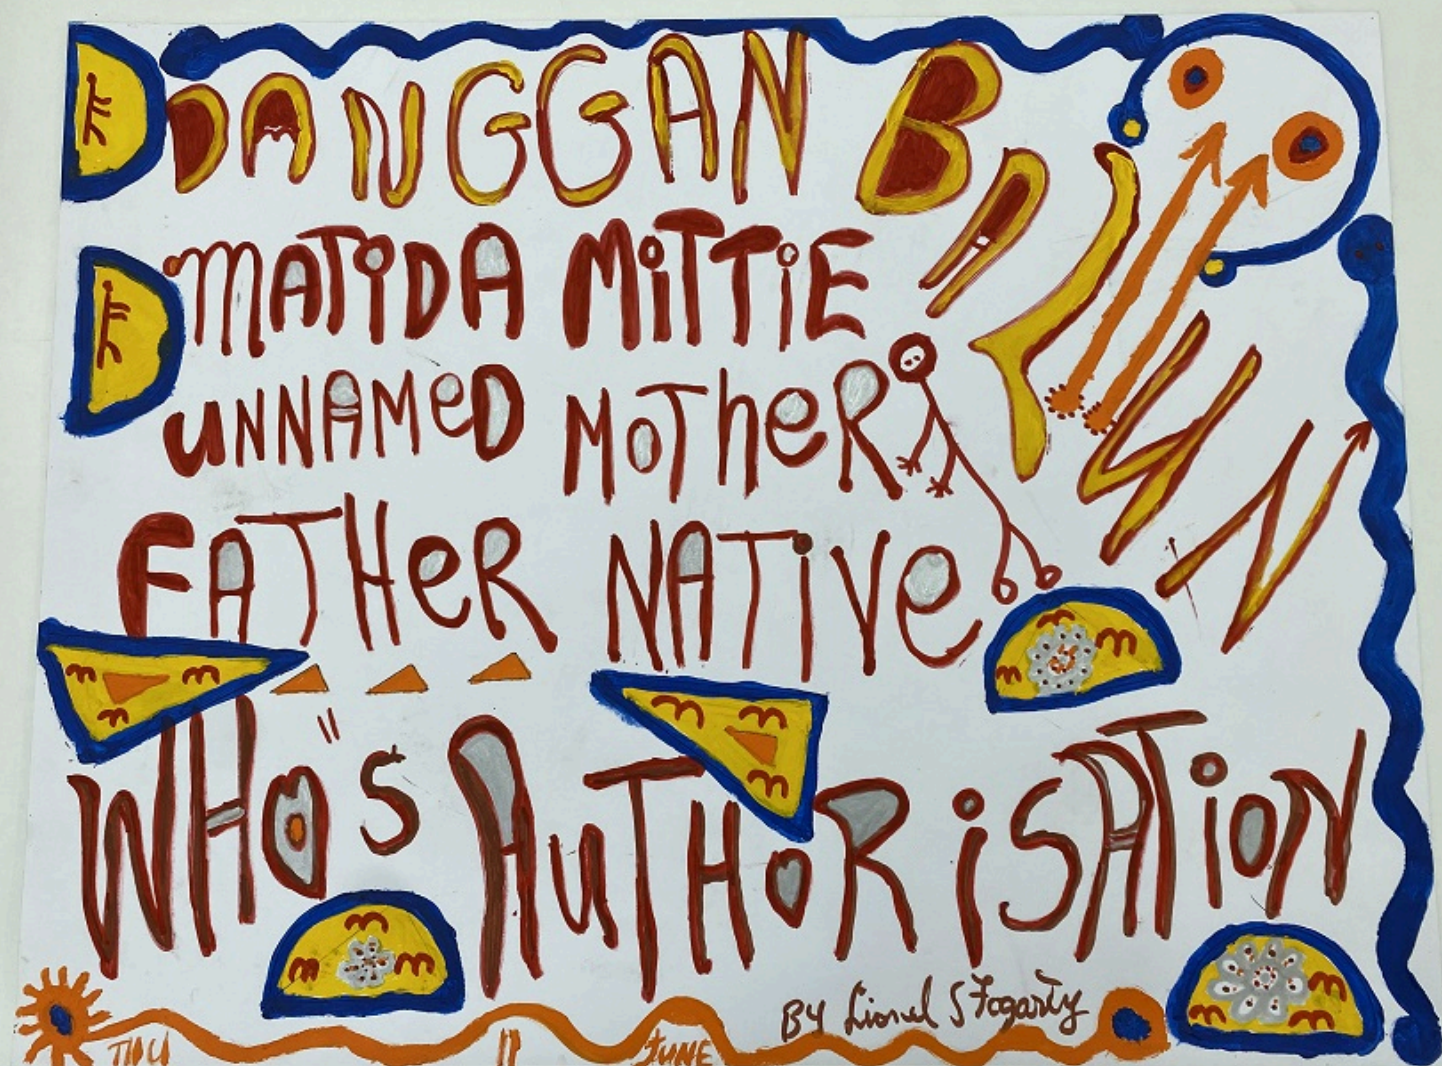 DANGGAN BALUN
mATiDA MiTTiE
uNNAMeD MoTheR
FATHeR NATiVe
WHO"S AuTHORiSATioN
BY Lionel S Fogarty
THU 11 JUNE